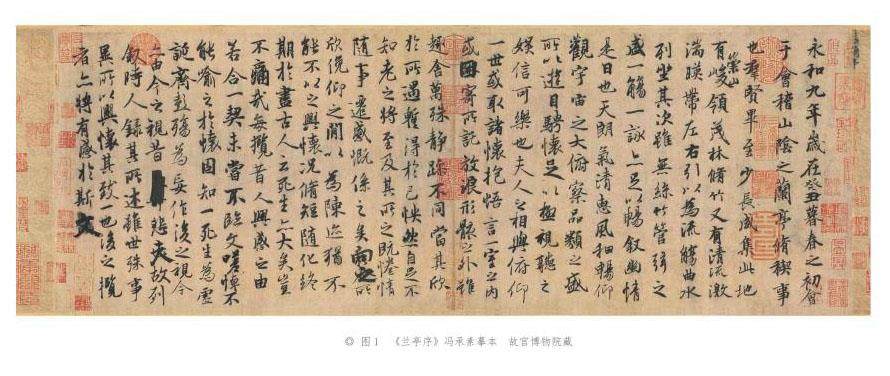 永和九年歲在癸丑暮春之初會
于會稽山陰之蘭亭脩稧事
也羣賢畢至少長咸集此地
有崇山峻領茂林脩竹又有清流激
湍暎帶左右引以為流觴曲水
列坐其次雖無絲竹管弦之
盛一觴一詠亦足以暢敘幽情
是日也天朗氣清惠風和暢仰
觀宇宙之大俯察品類之盛
所以遊目騁懷足以極視聽之
娛信可樂也夫人之相與俯仰
一世或取諸懷抱悟言一室之內
或因寄所託放浪形骸之外雖
趣舍萬殊靜躁不同當其欣
於所遇蹔得於己怏然自足不
知老之將至及其所之既惓情
隨事遷感慨係之矣向之所
欣俛仰之閒以為陳迹猶不
能不以之興懷況脩短隨化終
期於盡古人云死生亦大矣豈
不痛哉每攬昔人興感之由
若合一契未嘗不臨文嗟悼不
能喻之於懷固知一死生為虛
誕齊彭殤為妄作後之視今
亦由今之視昔悲夫故列
敘時人錄其所述雖世殊事
異所以興懷其致一也後之攬
者亦將有感於斯文
◎ 图1 《兰亭序》冯承素摹本 故宫博物院藏